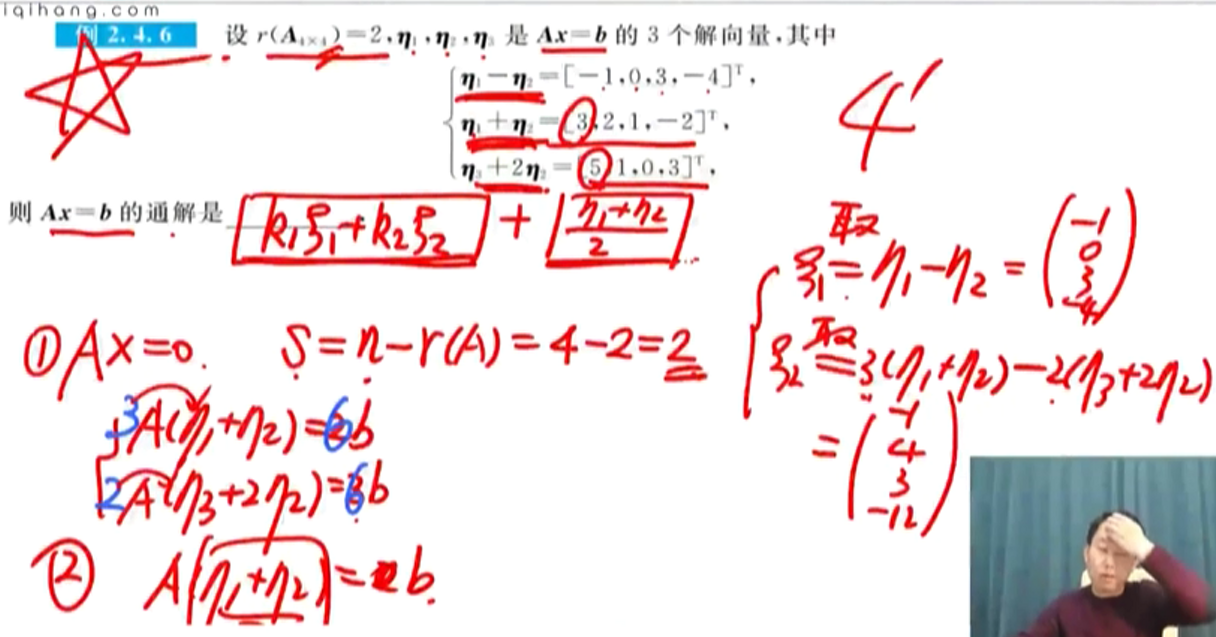 iqihang.com
例 2.4.6 设 r(A₄ₓ₄)=2,η₁,η₂,η₃ 是 Ax=b 的 3 个解向量,其中
η₁-η₂=[-1,0,3,-4]ᵀ,
η₁+η₂=[3,2,1,-2]ᵀ,
η₃+2η₂=[5,1,0,3]ᵀ,
则 Ax=b 的通解是
k₁ξ₁+k₂ξ₂ + (η₁+η₂)/2
4'
① Ax=0. S=n-r(A)=4-2=2
3A(η₁+η₂)=6b
2A(η₃+2η₂)=6b
② A(η₁+η₂)=2b.
取
ξ₁=η₁-η₂=(-1 0 3 -4)
取
ξ₂=3(η₁+η₂)-2(η₃+2η₂)
=(-1 4 3 -12)